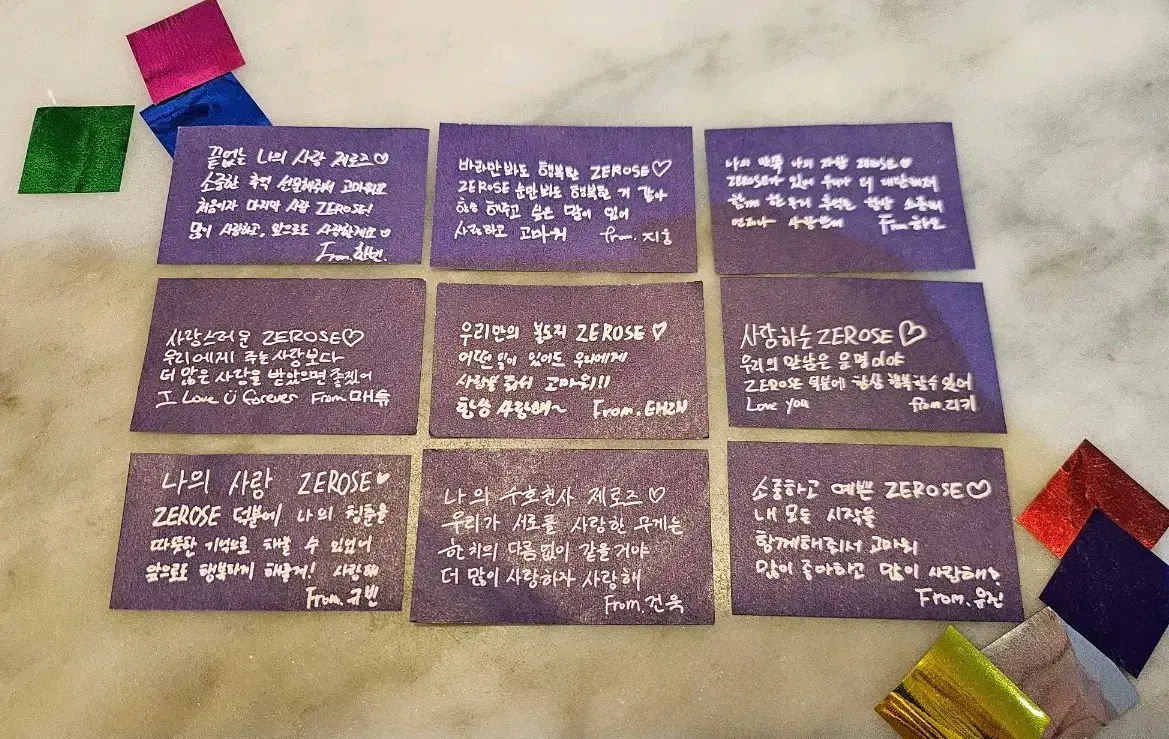 끝없는 나의 사랑 제로즈♡
소중한 추억 선물해줘서 고마워요
처음이자 마지막 사랑 ZEROSE!
많이 사랑하고, 앞으로도 사랑할게요♡
From.한빈
바라만봐도 행복한 ZEROSE♡
ZEROSE 눈만봐도 행복한 거 같아
항상 해주고 싶은 말이 있어
사랑하고 고마워 from.지웅
나의 만뚝 나의 자랑 ZEROSE♡
ZEROSE가 있어 우리가 더 대단해져
함께 한 우리 추억은 항상 소중해
언제나 사랑해 From.하오
사랑스러운 ZEROSE♡
우리에게 주는 사랑보다
더 많은 사랑을 받았으면 좋겠어
I Love U forever From매튜
우리만의 불도저 ZEROSE♡
어떤 일이 있어도 우리에게
사랑을 줘서 고마워!!
항상 사랑해~ From.태래
사랑하는 ZEROSE♡
우리의 만남은 운명이야
ZEROSE 덕분에 항상 행복할 수 있어
Love you from.리키
나의 사랑 ZEROSE♥
ZEROSE 덕분에 나의 청춘을
따뜻한 기억으로 채울 수 있었어
앞으로도 행복하게 해줄게! 사랑해
From.규빈
나의 수호천사 제로즈♡
우리가 서로를 사랑한 무게는
한치의 다름없이 같을거야
더 많이 사랑하자 사랑해
From.건욱
소중하고 예쁜 ZEROSE♡
내 모든 시작을
함께해줘서 고마워
많이 좋아하고 많이 사랑해?
From.유진